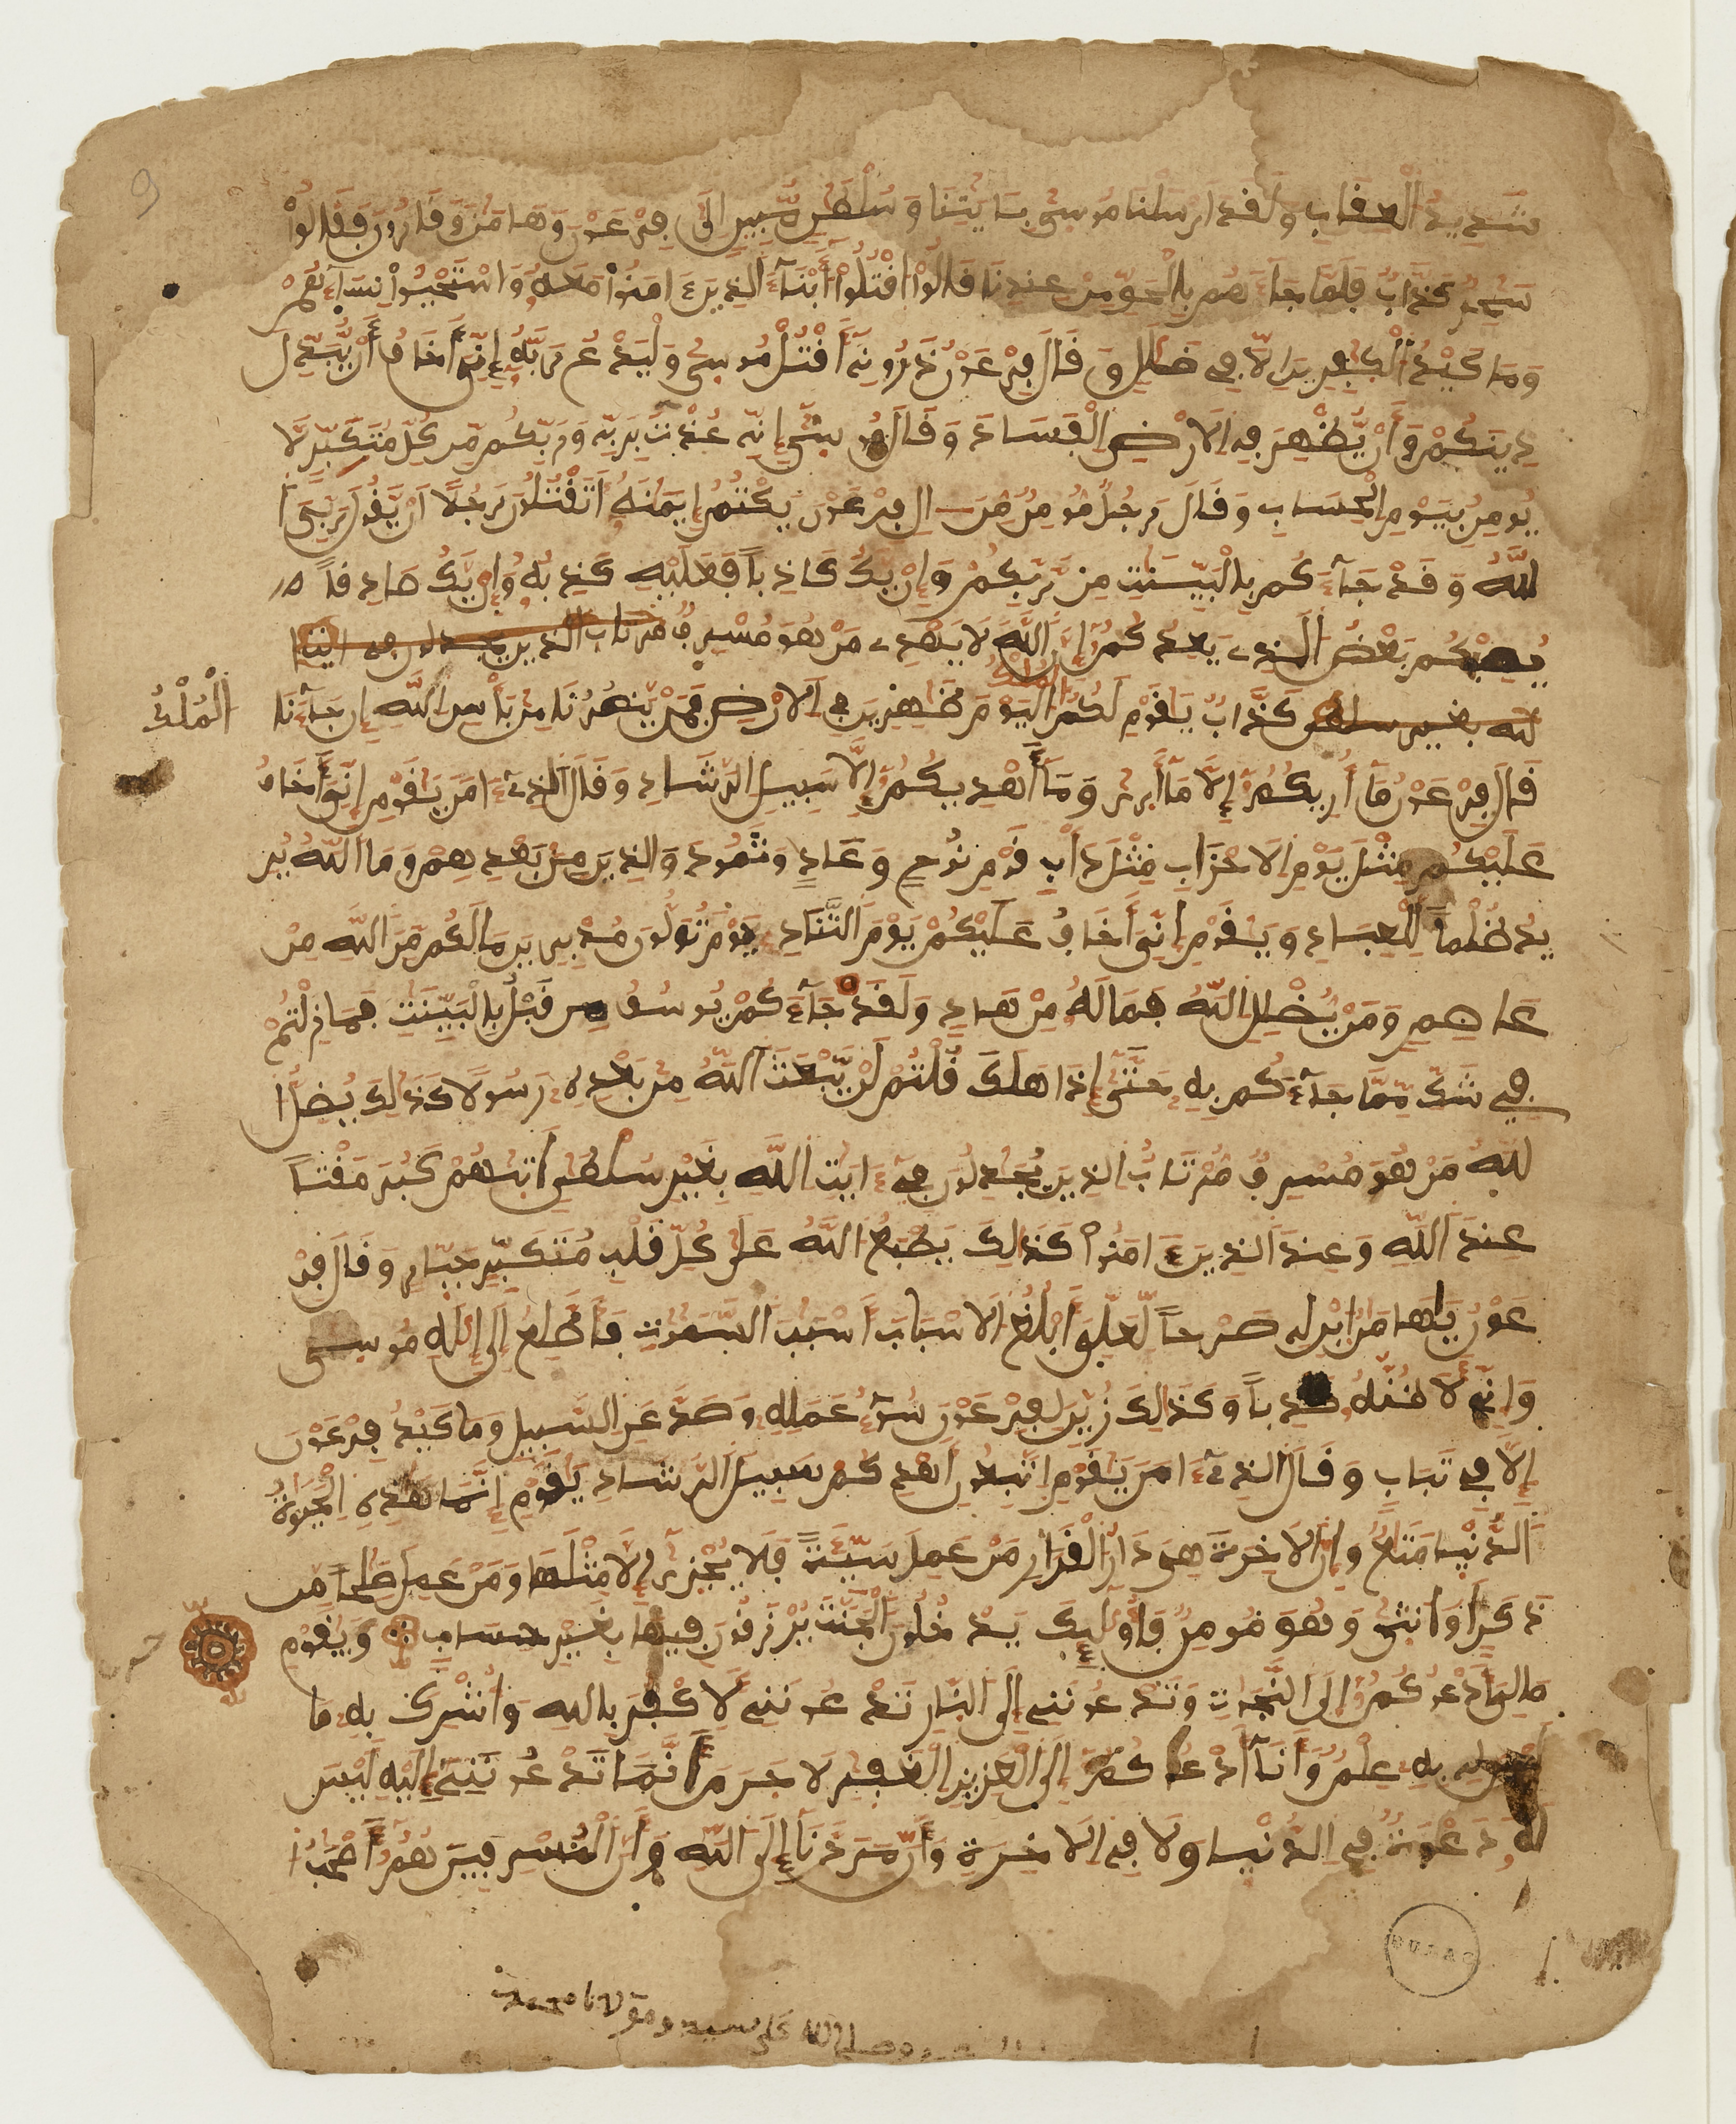 شَدِيدُ الْعِقَابِ وَلَقَدَ ارْسَلْنَا مُوسٜى بِـَٔايَٰتِنَا وَسُلْطَٰنٍ مُّبِينٍ اِلَىٰ فِرْعَوْنَ وَهَٰمَٰنَ وَقَٰرُونَ فَقَالُواْ
سَٰحِرٌ كَذَّابٌ فَلَمَّا جَآءَهُم بِالْحَقِّ مِنْ عِندِنَا قَالُواْ اقْتُلُوٓاْ أَبْنَآءَ الَذِينَ ءَامَنُواْ مَعَهُۥ وَاسْتَحْيُواْ نِسَآءَهُمْ
وَمَا كَيْدُ الْكٰفِرِينَ إِلَّا فِى ضَلَٰلٍ وَقَالَ فِرْعَوْنُ ذَرُونِىٓ أَقْتُلْ مُوسٜى وَلْيَدْعُ رَبَّهُۥٓ إِنِّىَ أَخَافُ أَنْ يُّبَدِّلَ
دِينَكُمْ وَأَنْ يُّظْهِرَ فِى الَارْضِ الْفَسَادَ وَقَالَ مُوسٜىٓ إِنِّى عُذْتُ بِرَبِّى وَرَبِّكُم مِّن كُلِّ مُتَكَبِّرٍ لَّا
يُومِنُ بِيَوْمِ الْحِسَابِ وَقَالَ رَجُلٌ مُّومِنٌ مِّنَ ـالِ فِرْعَوْنَ يَكْتُمُ إِيمَٰنَهُۥٓ أَتَقْتُلُونَ رَجُلًا اَنْ يَّقُولَ رَبِّىَ ا
للَّهُ وَقَدْ جَآءَكُم بِالْبَيِّنَٰتِ مِن رَّبِّكُمْ وَإِنْ يَّكُ كَٰذِباً فَعَلَيْهِ كَذِبُهُۥ وَإِنْ يَّكُ صَادِقاً
يُصِبْكُم بَعْضُ الَذِى يَعِدُكُمُۥٓ إِنَّ اللَّهَ لَا يَهْدِى مَنْ هُوَ مُسْرِفٌ مرتاب الذين يجٰدلون فى ءايٰت ا
لله بغير سلطٰن كَذَّابٌ يَٰقَوْمِ لَكُمُ الْمُلْكُ الْيَوْمَ ظَٰهِرِينَ فِى الَارْضِ فَمَنْ يَّنصُرُنَا مِن بَأْسِ اللَّهِ إِن جَآءَنَا
الْمُلْكُ
قَالَ فِرْعَوْنُ مَآ أُرِيكُمُۥٓ إِلَّا مَآ أَرٜىٰ وَمَآ أَهْدِيكُمُۥٓ إِلَّا سَبِيلَ الرَّشَادِ وَقَالَ الَذِىٓ ءَامَنَ يَٰقَوْمِ إِنِّىَ أَخَافُ
عَلَيْكُم مِّثْلَ يَوْمِ الَاحْزَابِ مِثْلَ دَأْبِ قَوْمِ نُوحٍ وَعَادٍ وَثَمُودَ وَالذِينَ مِنۢ بَعْدِهِمْ وَمَا اَللَّهُ يُرِ
يدُ ظُلْماً لِّلْعِبَادِ وَيَٰقَوْمِ إِنِّىَ أَخَافُ عَلَيْكُمْ يَوْمَ التَّنَادِ يَوْمَ تُوَلُّونَ مُدْبِرِينَ مَا لَكُم مِّنَ اَللَّهِ مِنْ
عَاصِمٍ وَمَنْ يُّضْلِلِ اللَّهُ فَمَا لَهُۥ مِنْ هَادٍ وَلَقَدْ جَآءَكُمْ يُوسُفُ مِن قَبْلُ بِالْبَيِّنَٰتِ فَمَا زِلْتُمْ
فِى شَكٍّ مِّمَّا جَآءَكُم بِهِۦ حَتَّىٰٓ إِذَا هَلَكَ قُلْتُمْ لَنْ يَّبْعَثَ اَللَّهُ مِنۢ بَعْدِهِۦ رَسُولًا كَذَٰلِكَ يُضِلُّ ا
للَّهُ مَنْ هُوَ مُسْرِفٌ مُّرْتَابٌ الذِينَ يُجَٰدِلُونَ فِىٓ ءَايَٰتِ اللَّهِ بِغَيْرِ سُلْطَٰنٍ اَتٜىٰهُمْ كَبُرَ مَقْتاً
عِندَ اَللَّهِ وَعِندَ اَلذِينَ ءَامَنُواْ كَذَٰلِكَ يَطْبَعُ اللَّهُ عَلَىٰ كُلِّ قَلْبِ مُتَكَبِّرٍ جَبّٜارٍ وَقَالَ فِرْ
عَوْنُ يَٰهَٰمَٰنُ ابْنِ لِى صَرْحاً لَّعَلِّىَ أَبْلُغُ الَاسْبَٰبَ أَسْبَٰبَ السَّمَٰوَٰتِ فَأَطَّلِعُ إِلَىٰٓ إِلَٰهِ مُوسٜىٰ
وَإِنِّى لَأَظُنُّهُۥ كَٰذِباً وَكَذَٰلِكَ زُيِّنَ لِفِرْعَوْنَ سُوٓءُ عَمَلِهِۦ وَصَدَّ عَنِ السَّبِيلِ وَمَا كَيْدُ فِرْعَوْنَ
إِلَّا فِى تَبَابٍ وَقَالَ الَذِىٓ ءَامَنَ يَٰقَوْمِ اِتَّبِعُونِ أَهْدِكُمْ سَبِيلَ الرَّشَادِ يَٰقَوْمِ إِنَّمَا هَٰذِهِ الْحَيَوٰةُ
اَلدُّنْيٜا مَتَٰعٌ وَإِنَّ الَاخِرَةَ هِىَ دَارُ الْقَرٜارِ مَنْ عَمِلَ سَيِّئَةً فَلَا يُجْزٜىٰٓ إِلَّا مِثْلَهَا وَمَنْ عَمِلَ صَٰلِحاً مِّن
ذَكَرٍ اَوُ انثٜىٰ وَهُوَ مُومِنٌ فَأُوْلَٰٓئِكَ يَدْخُلُونَ الْجَنَّةَ يُرْزَقُونَ فِيهَا بِغَيْرِ حِسَابٍ وَيَٰقَوْمِ
مَا لِىَ أَدْعُوكُمُۥٓ إِلَى النَّجَوٰةِ وَتَدْعُونَنِىٓ إِلَى النّٜارِ تَدْعُونَنِى لِأَكْفُرَ بِاللهِ وَأُشْرِكَ بِهِۦ مَا
لَيْسَ لِى بِهِۦ عِلْمٌ وَأَنَآ أَدْعُوكُمُۥٓ إِلَى الْعَزِيزِ الْغَفّٰرِ لَا جَرَمَ أَنَّمَا تَدْعُونَنِىٓ إِلَيْهِ لَيْسَ
لَهُۥ دَعْوَةٌ فِى الدُّنْيٜا وَلَا فِى الَاخِرَةِ وَأَنَّ مَرَدَّنَآ إِلَى اَللَّهِ وَأَنَّ الْمُسْرِفِينَ هُمُۥٓ أَصْحَٰبُ ا
وصلى الله على سيدنا ومولانا محمد